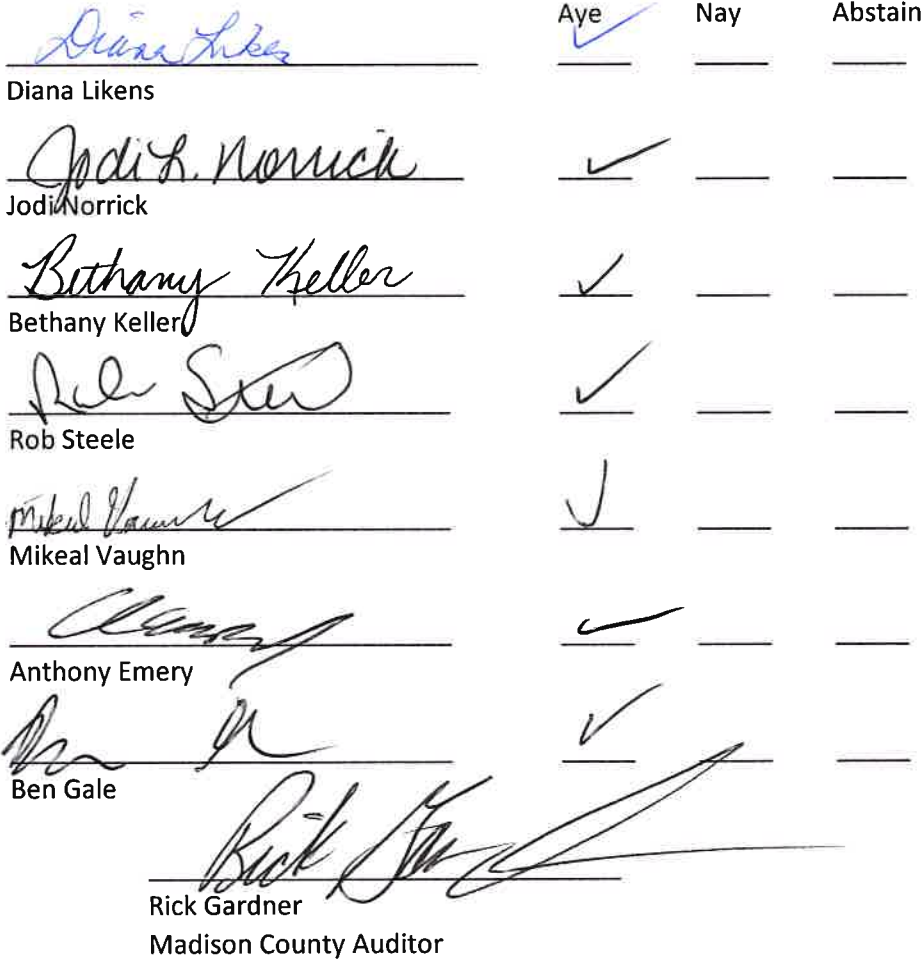 Aye Nay Abstain
Diana Likens
Diana Likens
Jodi L. Norrick
Jodi Norrick
Bethany Keller
Bethany Keller
Rob Steele
Mikeal Vaughn
Mikeal Vaughn
Anthony Emery
Ben Gale
Rick Gardner
Rick Gardner
Madison County Auditor